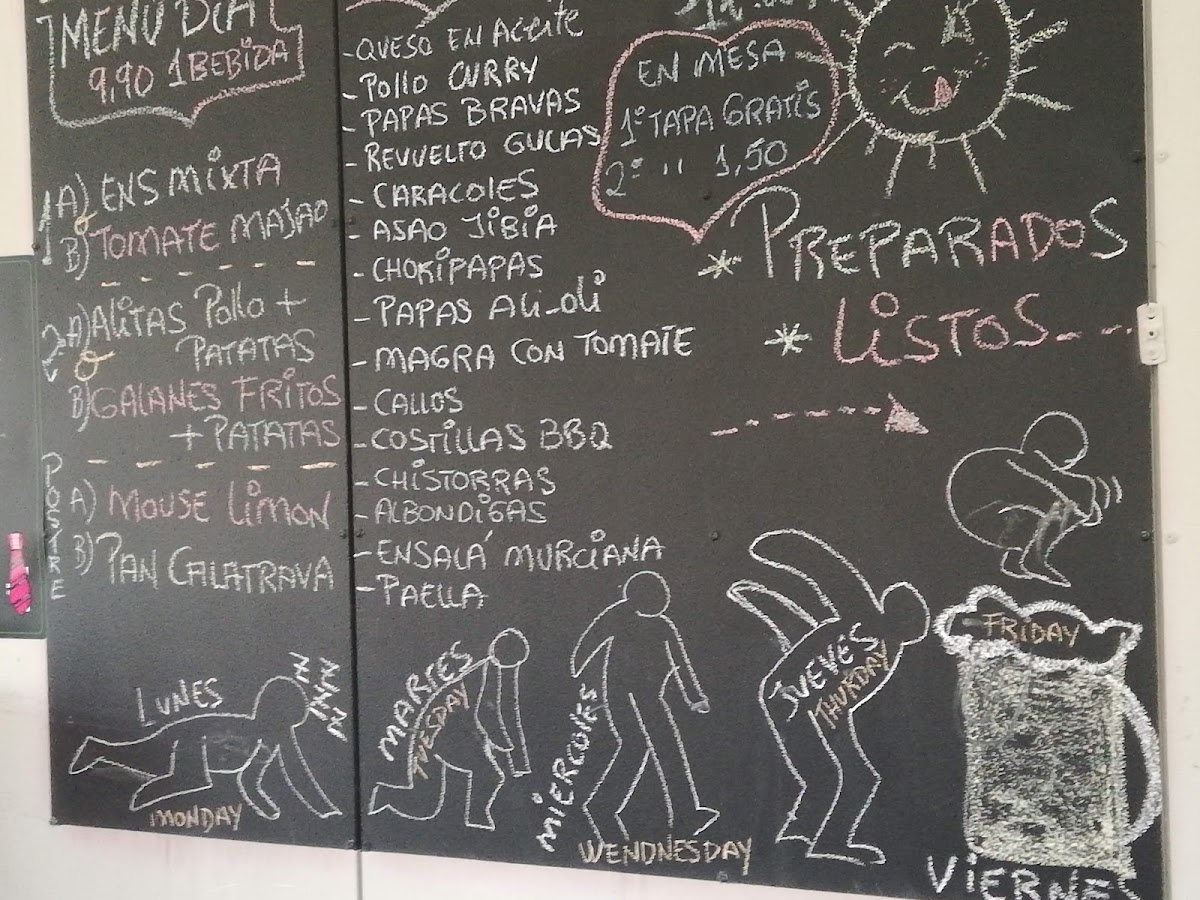 MENU DIA
9,90 1 BEBIDA
1 A) ENS MIXTA
o
B) TOMATE MAJAO
2 A) ALITAS Pollo +
PATATAS
o
B) GALANES FRITOS
+ PATATAS
POSTRE
A) MOUSE LIMON
B) PAN CALATRAVA
- QUESO EN ACEITE
- Pollo CURRY
- PAPAS BRAVAS
- REVUELTO GULAS
- CARACOLES
- ASAO JIBIA
- CHOKIPAPAS
- PAPAS ALi-oli
- MAGRA CON TOMATE
- CALLOS
- COSTILLAS BBQ
- CHISTORRAS
- ALBONDIGAS
- ENSALÁ MURCIANA
- PAELLA
EN MESA
1º TAPA GRATIS
2º " 1,50
* PREPARADOS
* LISTOS---
LUNES
ZZZZZ
MONDAY
MARTES
TUESDAY
MIERCOLES
WENDNESDAY
JUEVES
THURDAY
FRIDAY
VIERNES